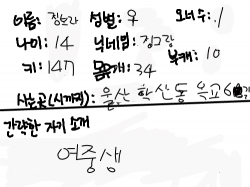 이름: 성별: 오너수: 1
나이: 14 닉네임: 징그랑
키: 147 몸무게: 34 부캐: 10
사는곳(시까지): 울산 학산동 옥교
간략한 자기 소개
여중생